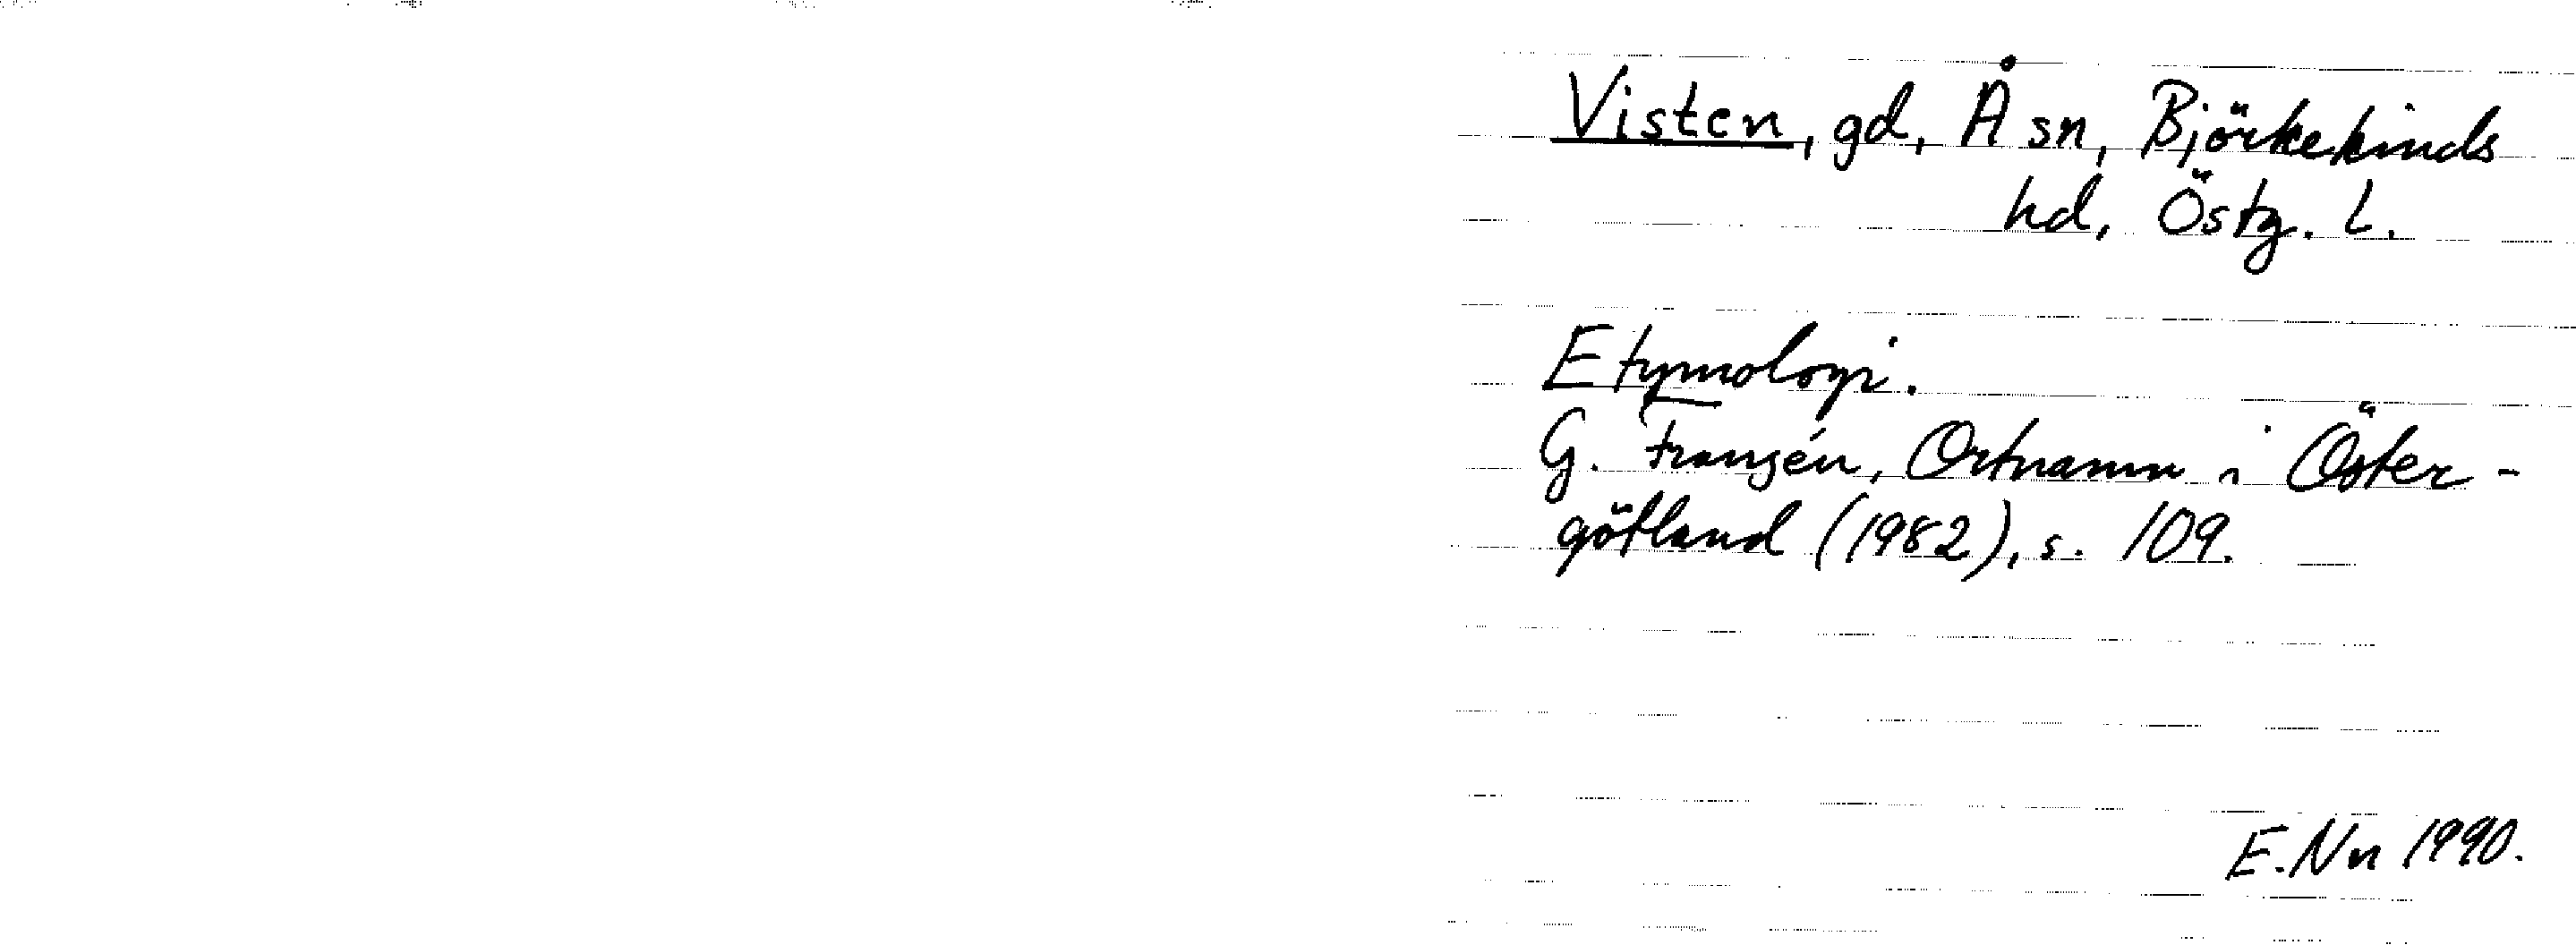 Visten, gd, Å sn, Björkekinds
hd, Östg. L.
Etymologi.
G. Franzén, Ortnamn i Öster-
götland (1982), s. 109.
E. Nn 1990.